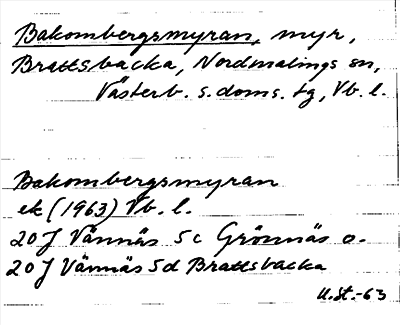 Bakombergsmyran, myr,
Brattsbacka, Nordmalings sn,
Västerb. s. doms. tg, Vb. l.
Bakombergsmyran
ek (1963) Vb. l.
20 J Vännäs 5c Grönnäs o.
20 J Vännäs 5d Brattsbacka
U.St.-63